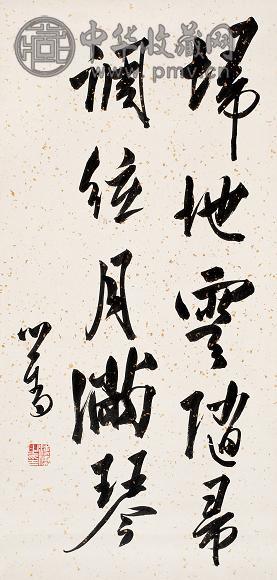 中华收藏网
www.pmv.cn
埽地雲隨帚
調絃月滿琴
心畬